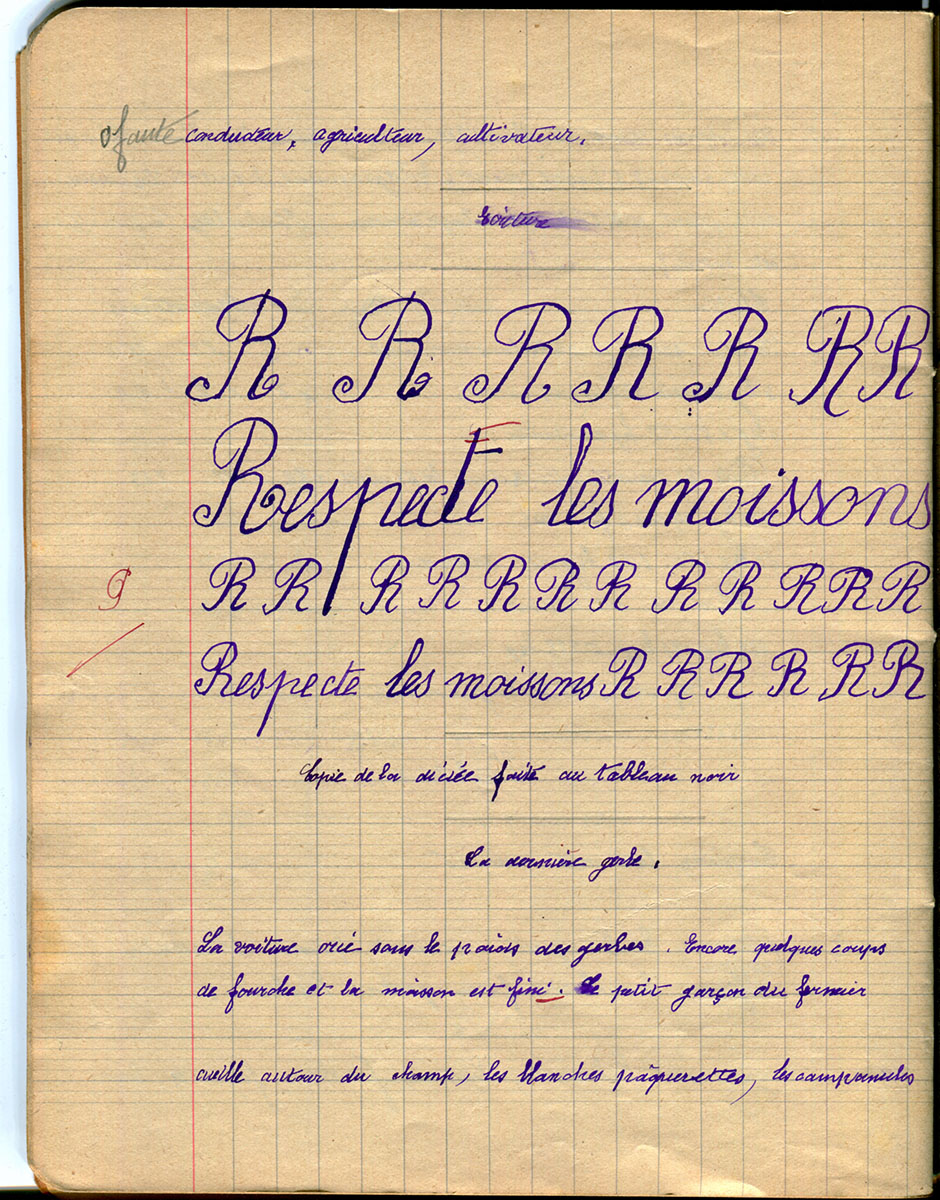 0 faute conducteur, agriculteur, cultivateur.
Ecriture
R R R R R R R
Respecte les moissons
R R R R R R R R R R R R
Respecte les moissons R R R R R R
Copie de la dictée faite au tableau noir
La dernière gerbe.
La voiture crie sous le poids des gerbes. Encore quelques coups
de fourche et la moisson est fini. Le petit garçon du fermier
cueille autour du champ, les blanches pâquerettes, les campanules